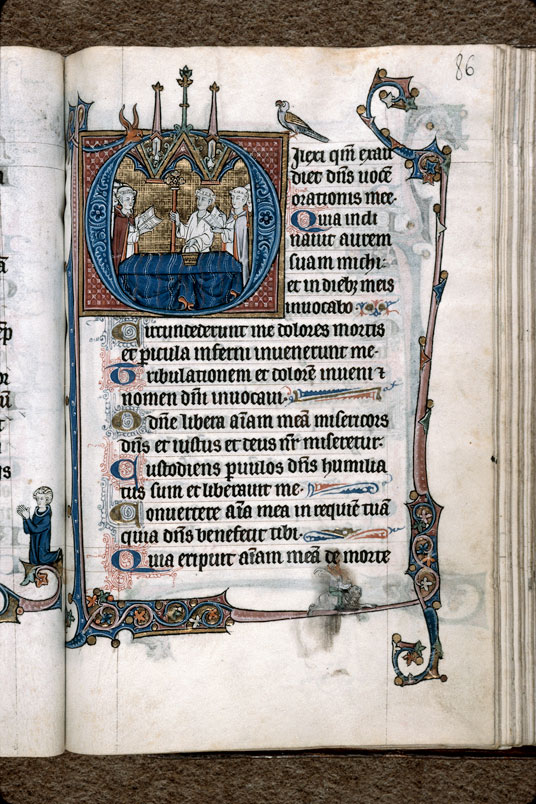 86
Dilexi qm̄ exau
diet dn̄s uocē
orationis mee.
Quia incli
nauit aurem
suam michi:
et in dieb; meis
inuocabo
Circundederunt me dolores mortis
et p̲icula inferni inuenerunt me.
Tribulationem et dolorē inueni ⁊
nomen dn̄i inuocaui.
O dn̄e libera aīam meā misericors
dn̄s et iustus et deus nr̄ miseretur.
Custodiens paruulos dn̄s humilia
tus sum et liberauit me.
Conuertere aīa mea in requiē tuā
quia dn̄s benefecit tibi.
Quia eripuit aīam meā de morte